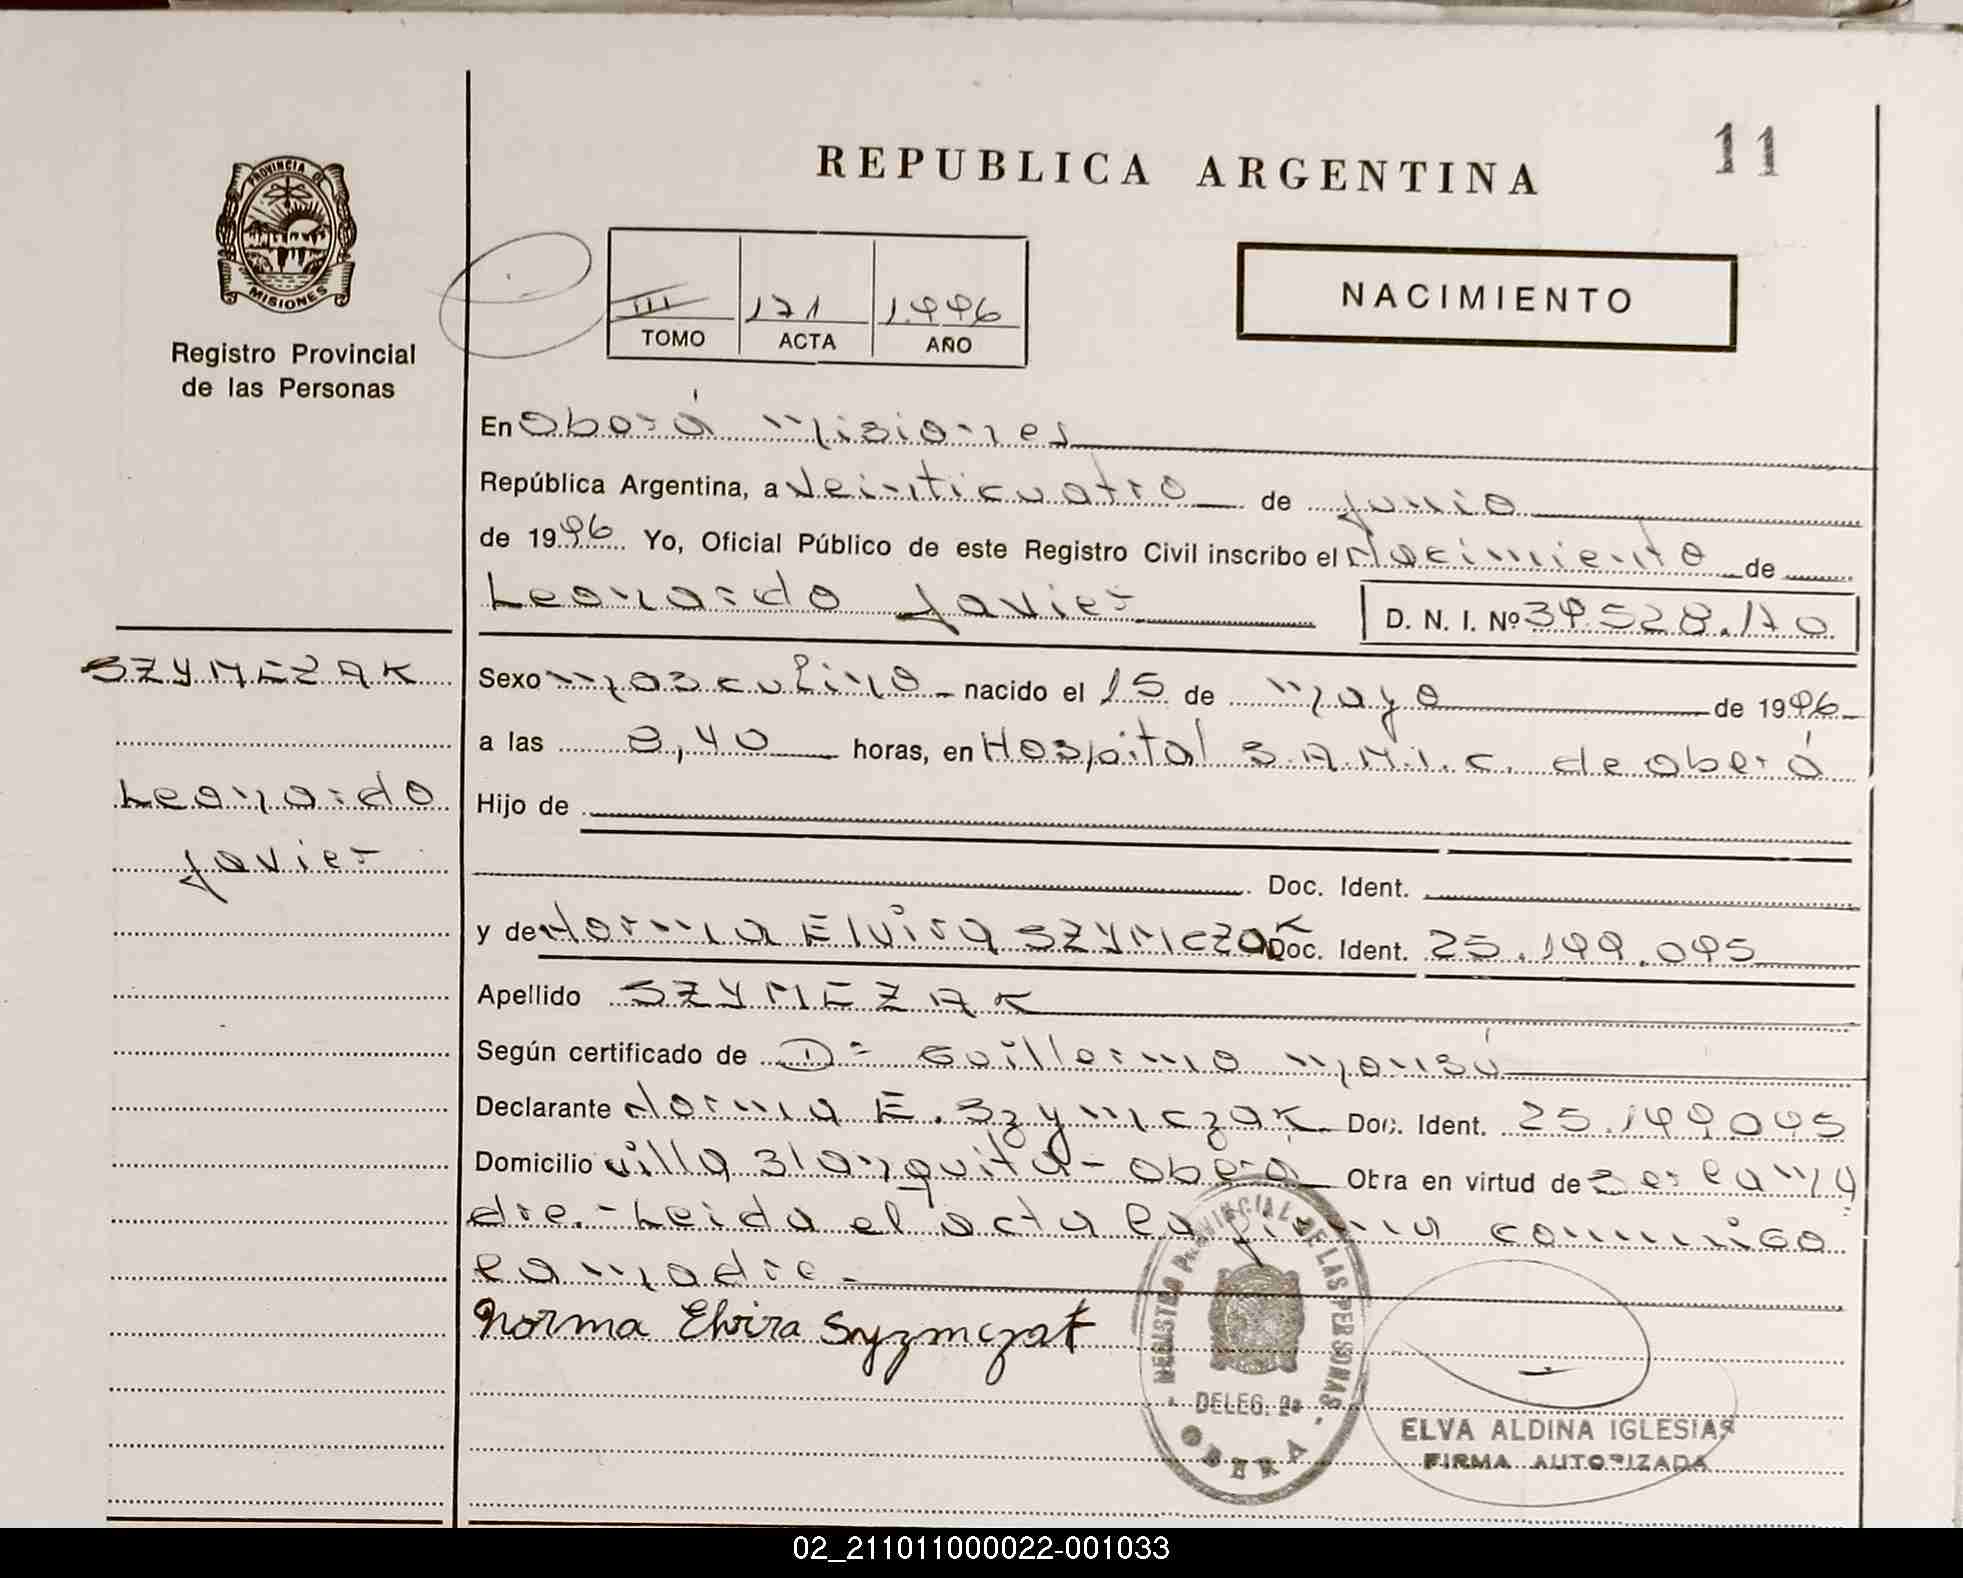 REPUBLICA ARGENTINA
11
PROVINCIA DE
MISIONES
Registro Provincial
de las Personas
III 171 1.996
TOMO ACTA AÑO
NACIMIENTO
En Oberá Misiones
República Argentina, a Veinticuatro de Junio
de 1996 Yo, Oficial Público de este Registro Civil inscribo el Nacimiento de
Leonardo Javier D. N. I. Nº 39.528.170
SZYMCZAK
Leonardo
Javier
Sexo masculino nacido el 15 de mayo de 1996
a las 8,40 horas, en Hospital S.A.M.I.C. de Oberá
Hijo de
Doc. Ident.
y de Norma Elvira SZYMCZAK Doc. Ident. 25.199.095
Apellido SZYMCZAK
Según certificado de Dr Guillermo
Declarante Norma E. Szymczak Doc. Ident. 25.199.095
Domicilio Villa Blanquita - Oberá Obra en virtud de Ser la ma
dre.- Leida el acta la firma conmigo
la madre.
Norma Elvira Syzmczak
REGISTRO PROVINCIAL DE LAS PERSONAS
DELEG. 2a
OBERA
ELVA ALDINA IGLESIAS
FIRMA AUTORIZADA
02_211011000022-001033